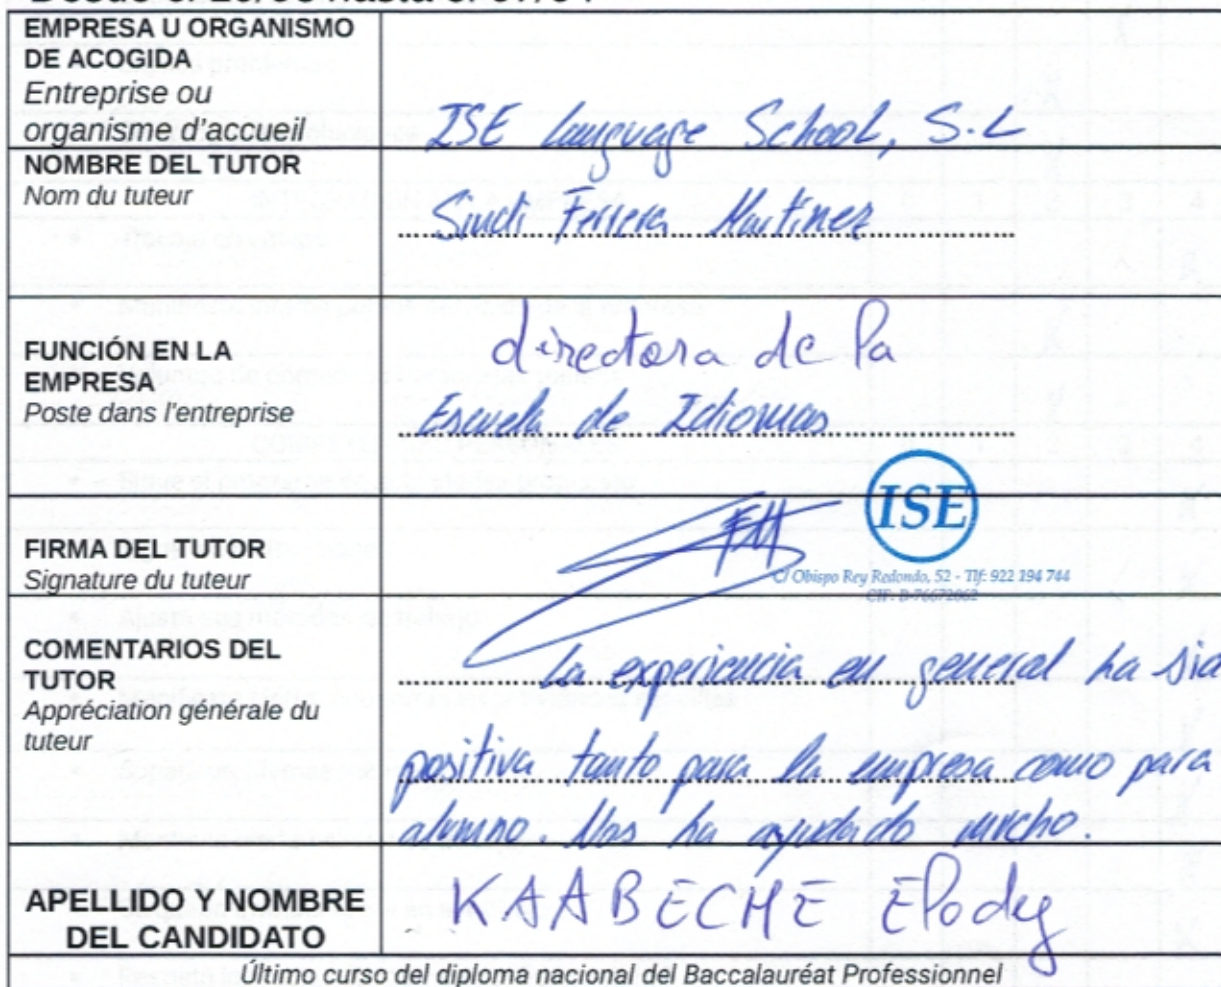 EMPRESA U ORGANISMO
DE ACOGIDA
Entreprise ou
organisme d'accueil
ISE Language School, S.L
NOMBRE DEL TUTOR
Nom du tuteur
Sindi Ferrera Martinez
FUNCIÓN EN LA
EMPRESA
Poste dans l'entreprise
directora de la
Escuela de Idiomas
ISE
FIRMA DEL TUTOR
Signature du tuteur
C/ Obispo Rey Redondo, 52 - Tlf: 922 194 744
COMENTARIOS DEL
TUTOR
Appréciation générale du
tuteur
La experiencia en general ha sid
positiva tanto para la empresa como para
alumno. Nos ha ayudado mucho.
APELLIDO Y NOMBRE
DEL CANDIDATO
KAABECHE Elody
Último curso del diploma nacional del Baccalauréat Professionnel